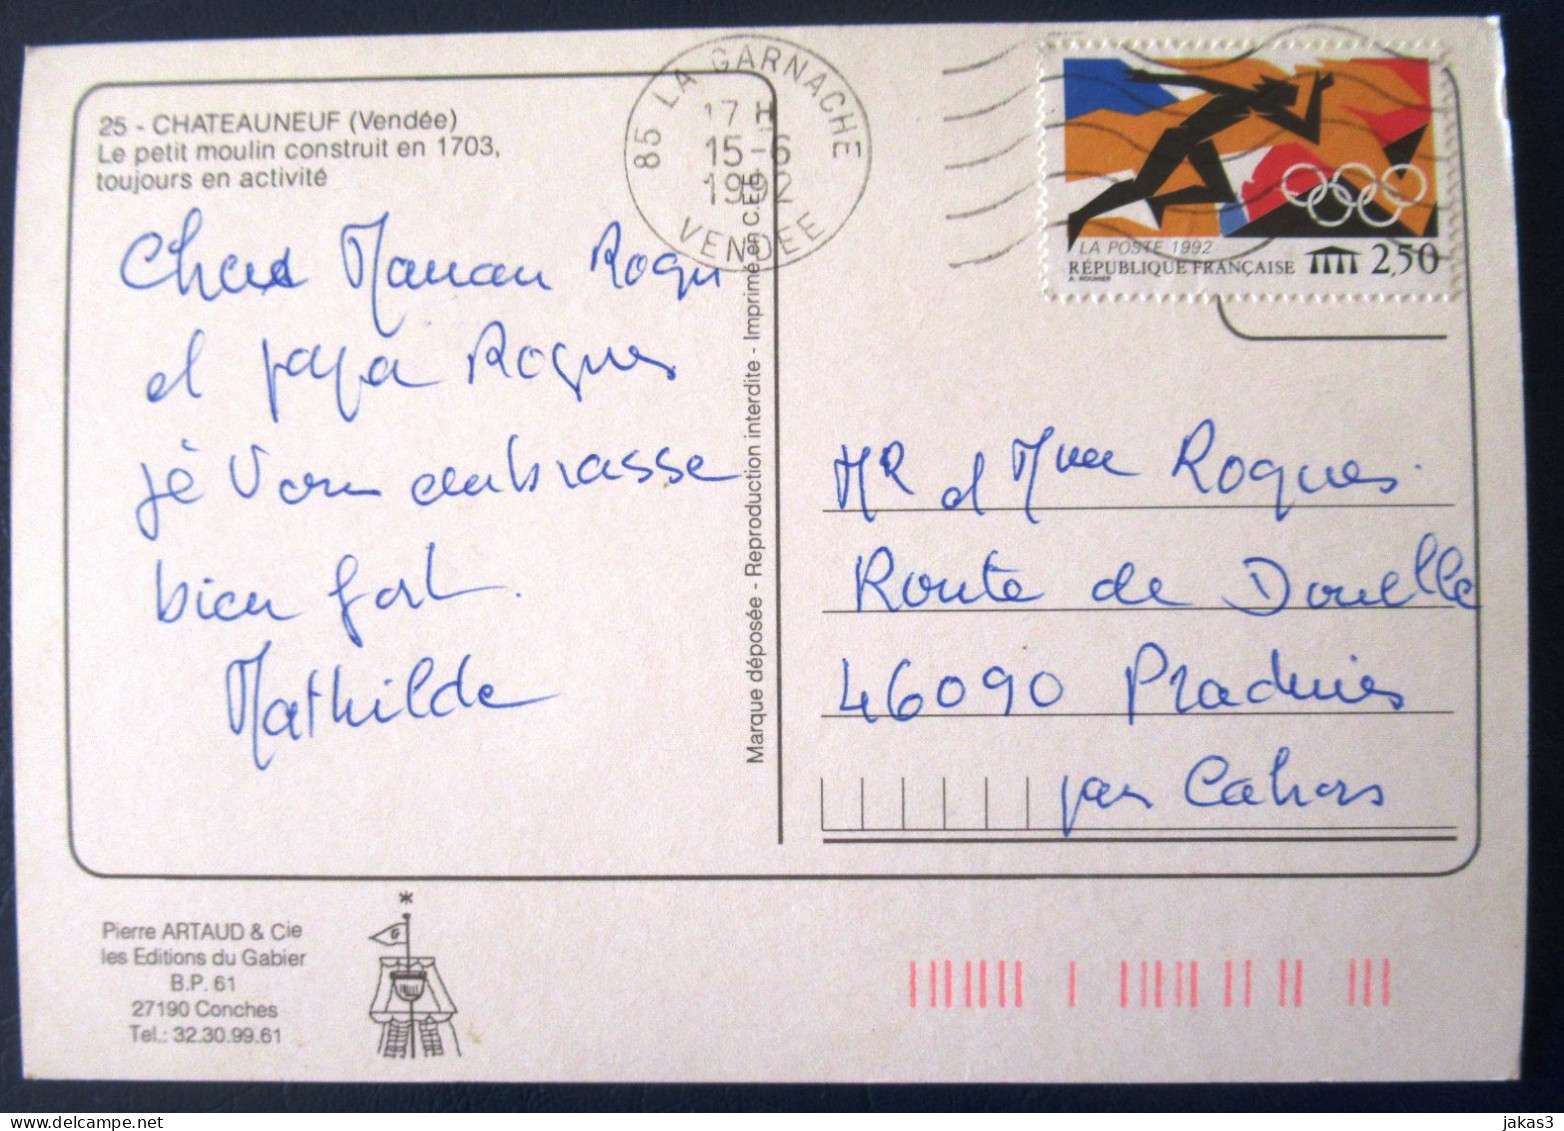 25 - CHATEAUNEUF (Vendée)
Le petit moulin construit en 1703,
toujours en activité
Chere Maman Roques
et papa Roques
je vous embrasse
bien fort.
Mathilde
Marque déposée - Reproduction interdite - Imprimé en C.E.E.
85 LA GARNACHE
17 H
15-6
1992
VENDEE
LA POSTE 1992
RÉPUBLIQUE FRANÇAISE 2,50
MR et Mme Roques.
Route de Douelle
46090 Pradines
par Cahors
Pierre ARTAUD & Cie
les Editions du Gabier
B.P. 61
27190 Conches
Tel.: 32.30.99.61
G
jakas3